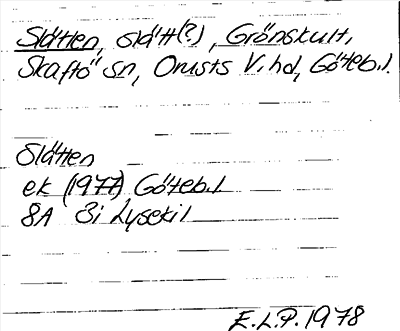 Slätten, slätt(?), Grönskult,
Skaftö sn, Orusts V. hd, Göteb.l.
Slätten
ek (1977) Göteb.l
8A 3i Lysekil
E.L.P. 1978